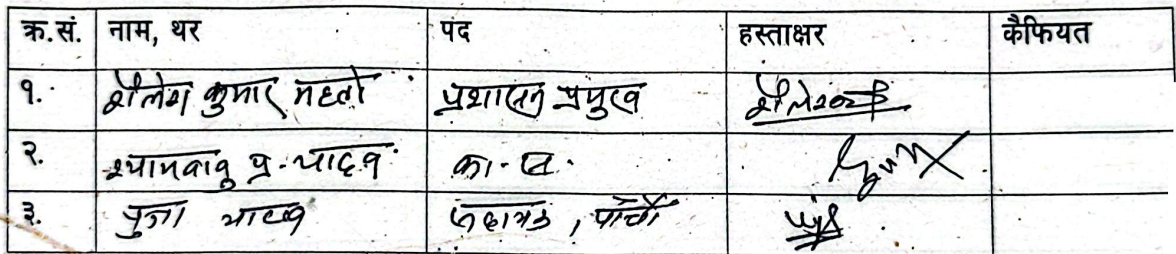 क्र.सं. नाम, थर पद हस्ताक्षर कैफियत
१. शैलेश कुमार महतो प्रशासन प्रमुख
२. श्यामबाबु प्र. यादव का. स.
३. पुजा यादव सहायक, पाँचौ